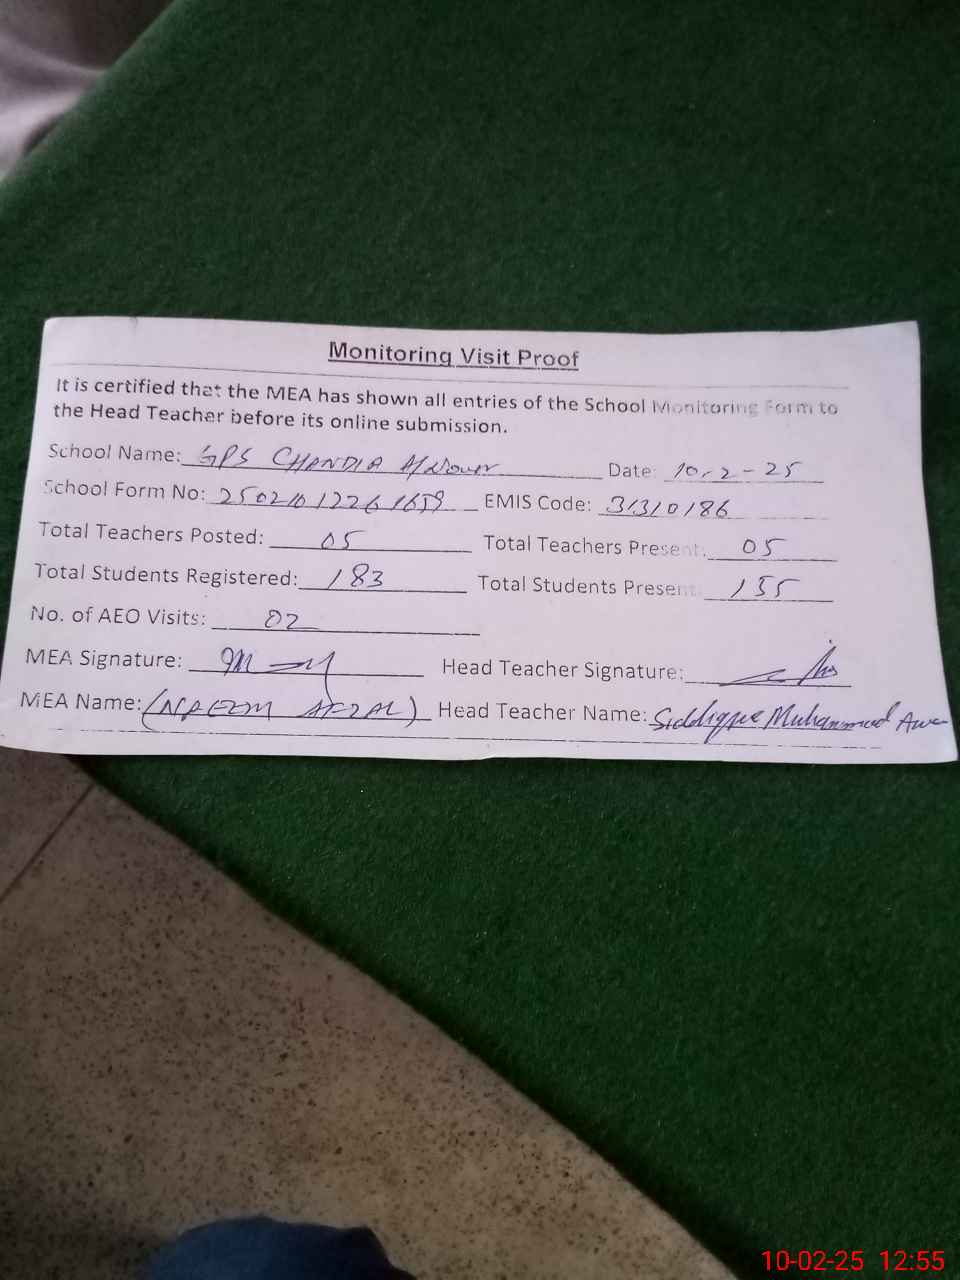 Monitoring Visit Proof
It is certified that the MEA has shown all entries of the School Monitoring Form to
the Head Teacher before its online submission.
School Name: GPS CHANDIA Date: 10-2-25
School Form No: 25021012261659 EMIS Code: 31310186
Total Teachers Posted: 05 Total Teachers Present: 05
Total Students Registered: 183 Total Students Present: 155
No. of AEO Visits: 02
MEA Signature: Head Teacher Signature:
MEA Name: (NAEEM AFZAL) Head Teacher Name: Siddique Muhammad
10-02-25 12:55